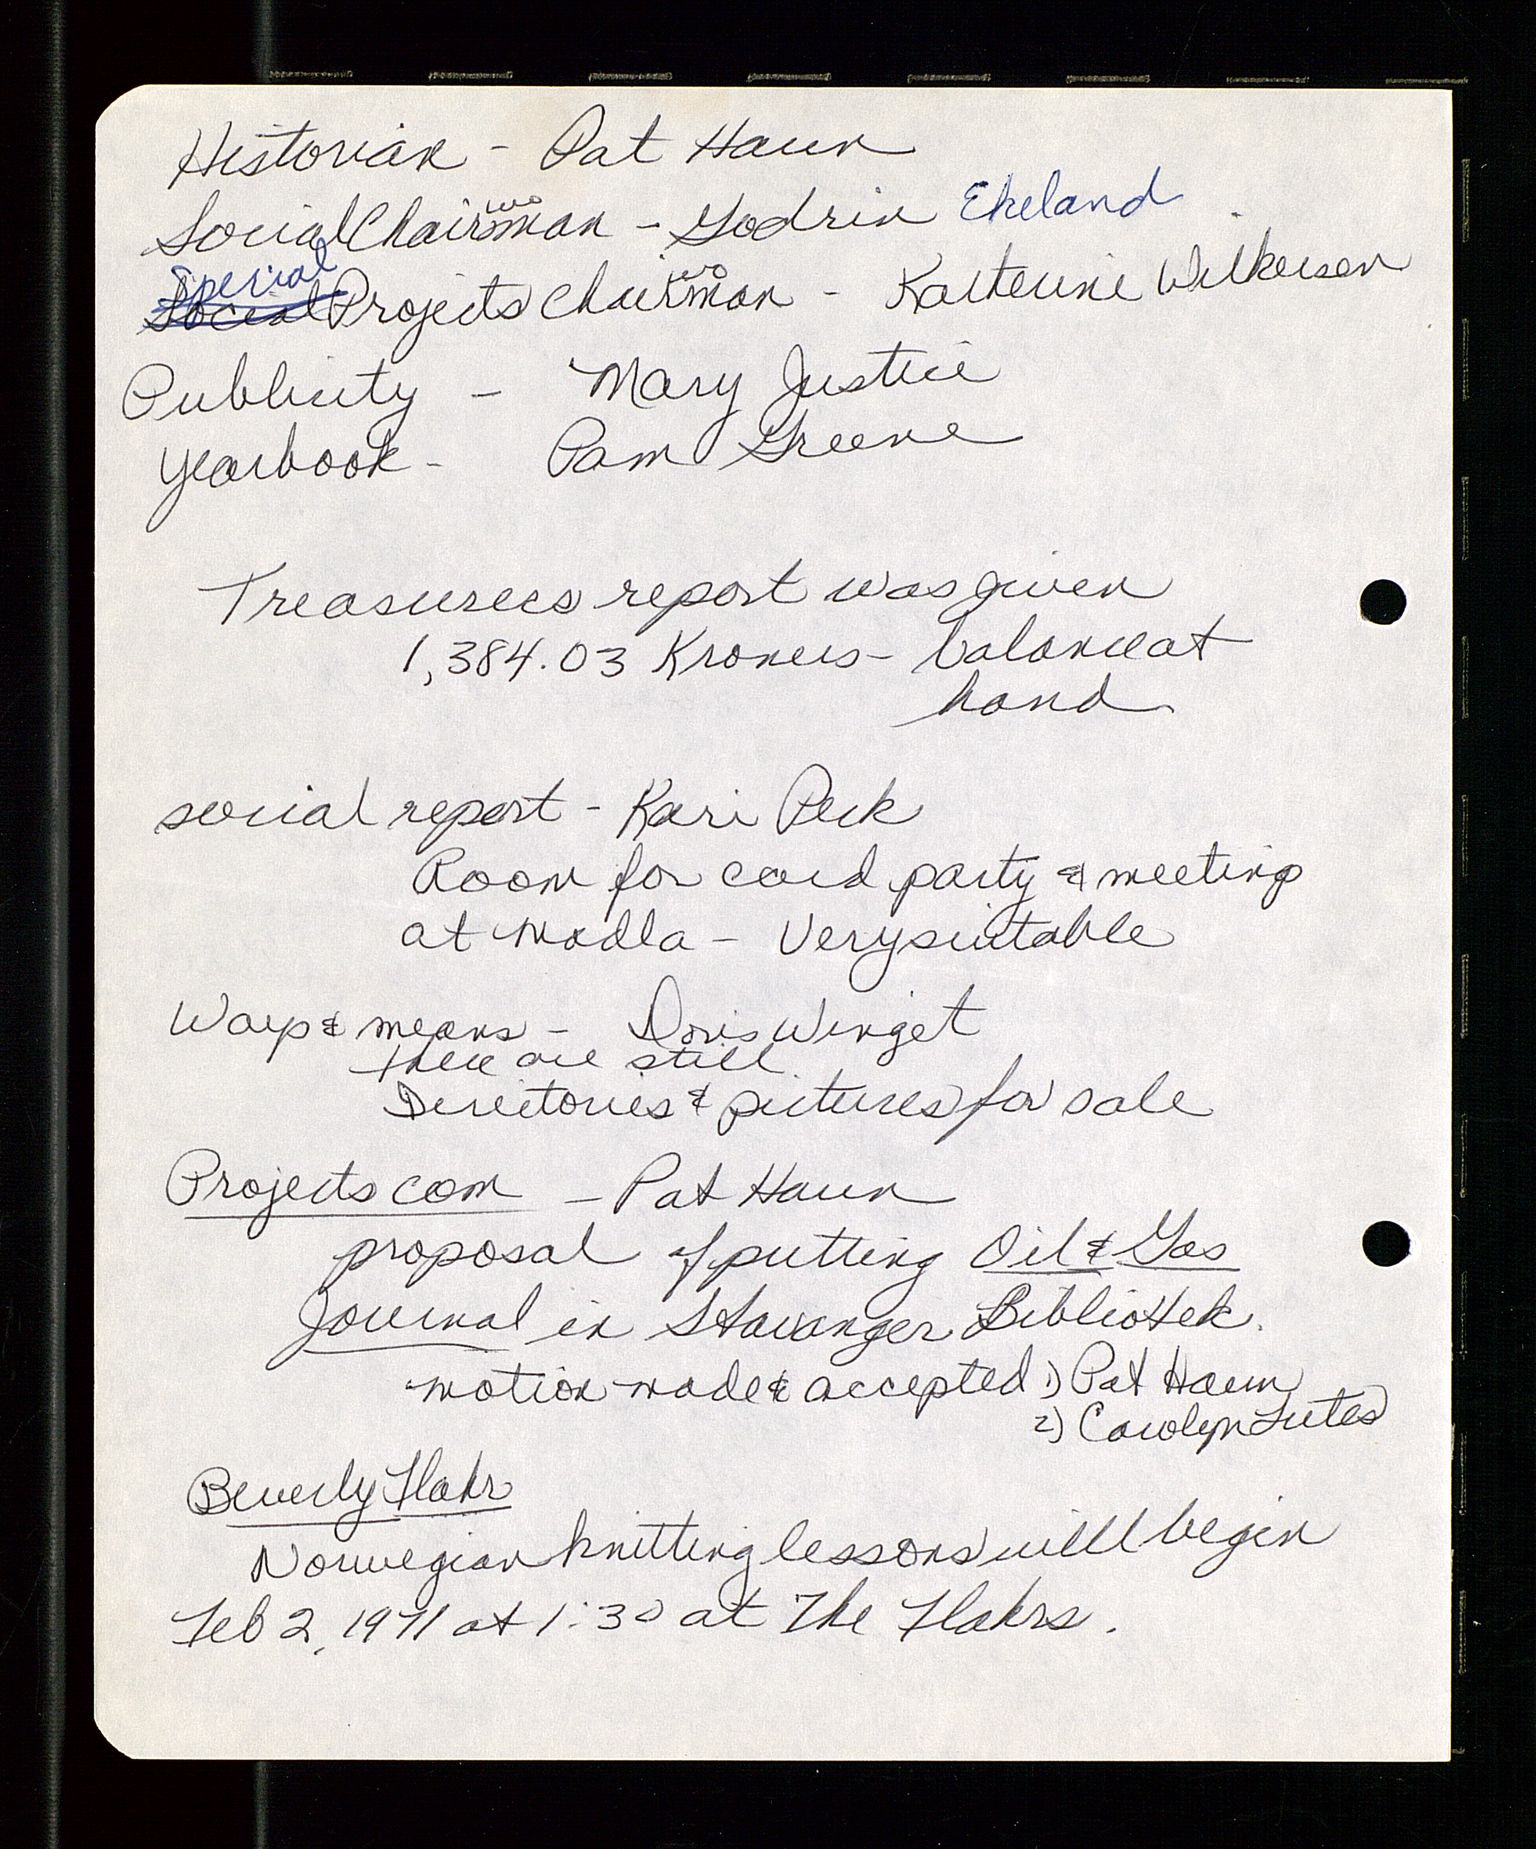 Historian - Pat Haun
Social Chairwoman - Godrin Ekeland
Special
Social Projects Chairwoman - Katherine Wilkerson
Publicity - Mary Justice
Yearbook - Pam Greene
Treasurers report was given
1,384.03 Kroners - balance at
hand.
social report - Kari Peck
Room for card party & meeting
at Madla - Very suitable
Ways & means - Doris Winget
there are still
Directories & pictures for sale
Projects com - Pat Haun
proposal of putting Oil & Gas
Journal in Stavanger Bibliotek.
motion made & accepted 1) Pat Haun
2) Carolyn Lutes
Beverly Flakr
Norwegian knitting lessons will begin
Feb 2, 1971 at 1:30 at The Flakrs.